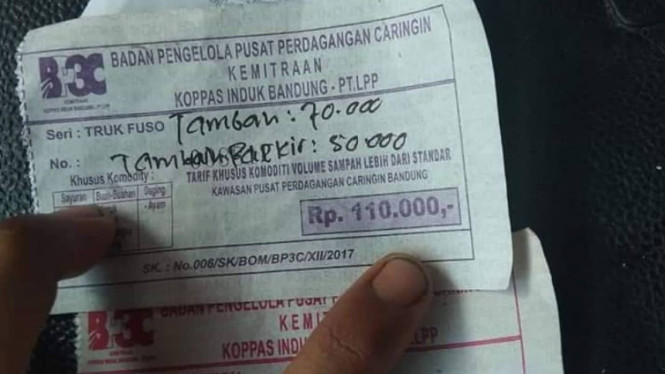 BP3C
BADAN PENGELOLA PUSAT PERDAGANGAN CARINGIN
KEMITRAAN
KOPPAS INDUK BANDUNG - PT.LPP
KEMITRAAN
KOPPAS INDUK BANDUNG - PT. LPP
Seri : TRUK FUSO Tambah : 70.000
No. : Tambah Parkir : 50.000
Khusus Komodity :
TARIF KHUSUS KOMODITI VOLUME SAMPAH LEBIH DARI STANDAR
KAWASAN PUSAT PERDAGANGAN CARINGIN BANDUNG
Sayuran Buah-Buahan Daging
- Ayam
Rp. 110.000,-
SK. : No.006/SK/BOM/BP3C/XII/2017
BP3C
BADAN PENGELOLA PUSAT
KEMI
KOPPAS INDU LPP
KEMITRAAN